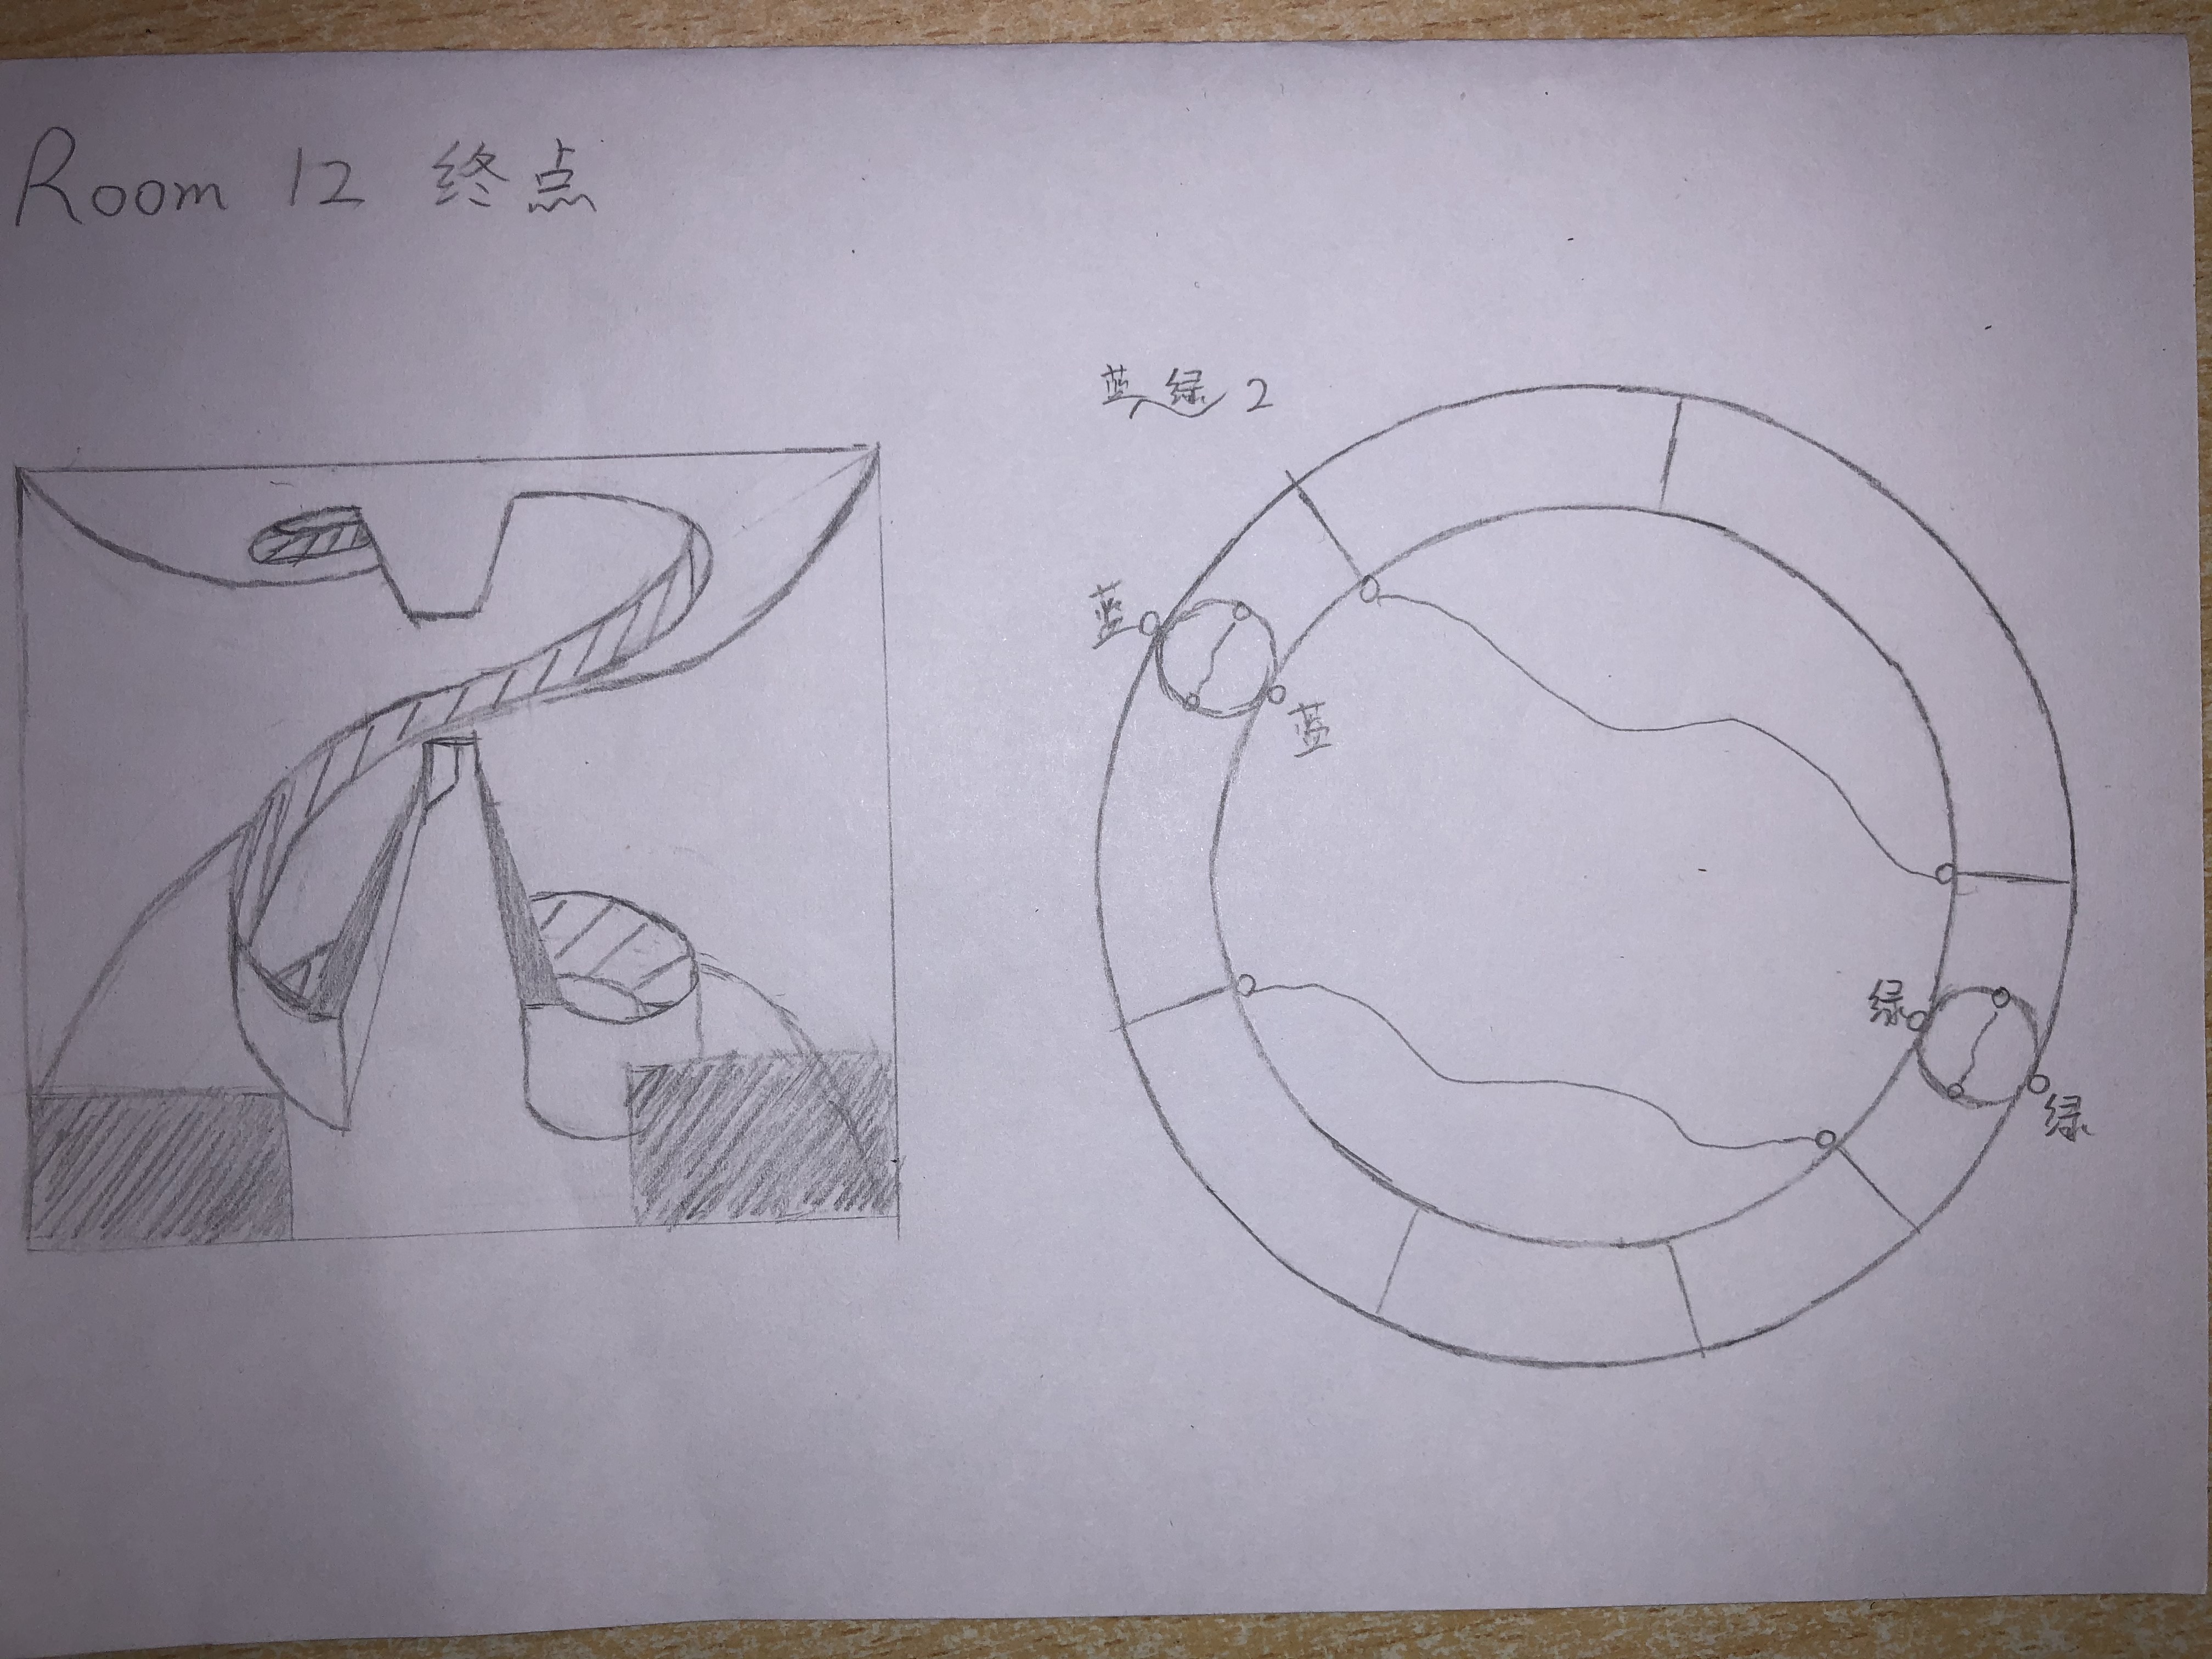 Room 12 终点
蓝 绿 2
蓝
蓝
绿
绿